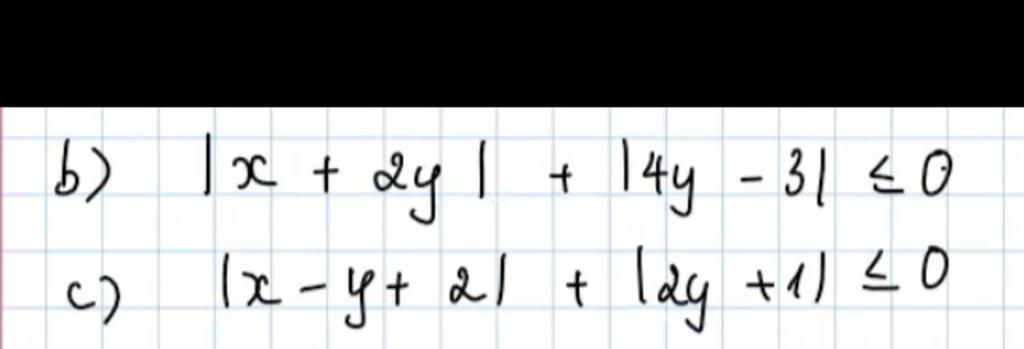 b) |x + 2y| + |4y - 3| ≤ 0
c) |x - y + 2| + |2y + 1| ≤ 0